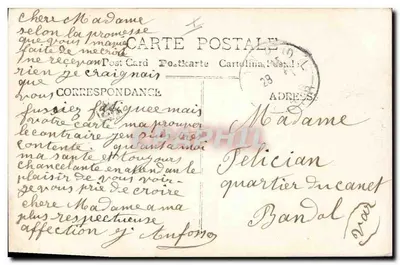 chere Madame
selon la promesse
que vous m'avez
faite de m'ecrire
ne recevan
rien je craignais
que
vous
fussiez fatiguee mais
votre carte ma prouver
le contraire jen suis
contente quant a moi
ma sante est toujours
chancelante en attendan le
plaisir de vous voir
je vous prie de croire
chere Madame a ma
plus respectueuse
affection
CARTE POSTALE
Post Card Postkarte Cartolina Postale
CORRESPONDANCE
ADRESSE
28
Madame
Felician
quartier du canet
Bandol
(var)